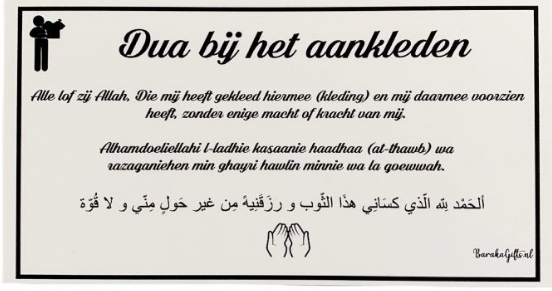 Dua bij het aankleden
Alle lof zij Allah, Die mij heeft gekleed hiermee (kleding) en mij daarmee voorzien
heeft, zonder enige macht of kracht van mij.
Alhamdoeliellahi l-ladhie kasaanie haadhaa (at-thawb) wa
razaqaniehen min ghayri hawlin minnie wa la qoewwah.
ألحَمْد لِلّه الّذي كسَانِي هذَا الثّوب و رزَقَنِيهُ مِن غير حَولٍ مِنّي و لا قُوّة
BarakaGifts.nl